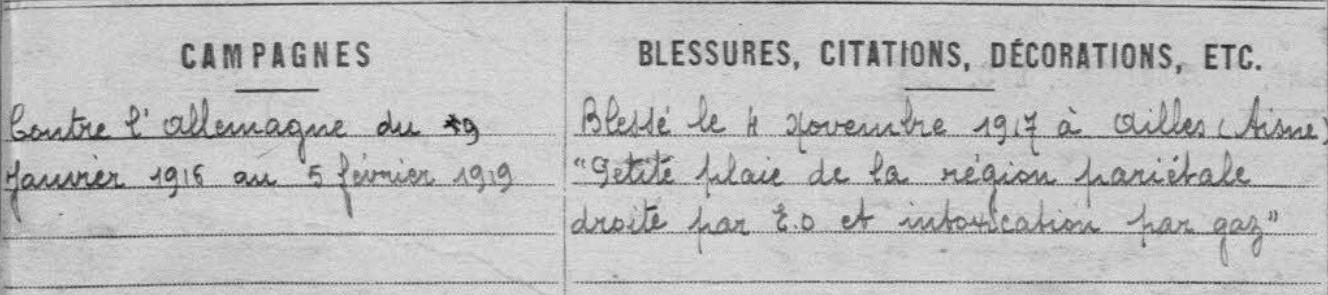 CAMPAGNES
Contre l'Allemagne du 9
Janvier 1916 au 5 février 1919
BLESSURES, CITATIONS, DÉCORATIONS, ETC.
Blessé le 4 Novembre 1917 à Ailles (Aisne)
"Petite plaie de la région pariétale
droite par E.O et intoxication par gaz"